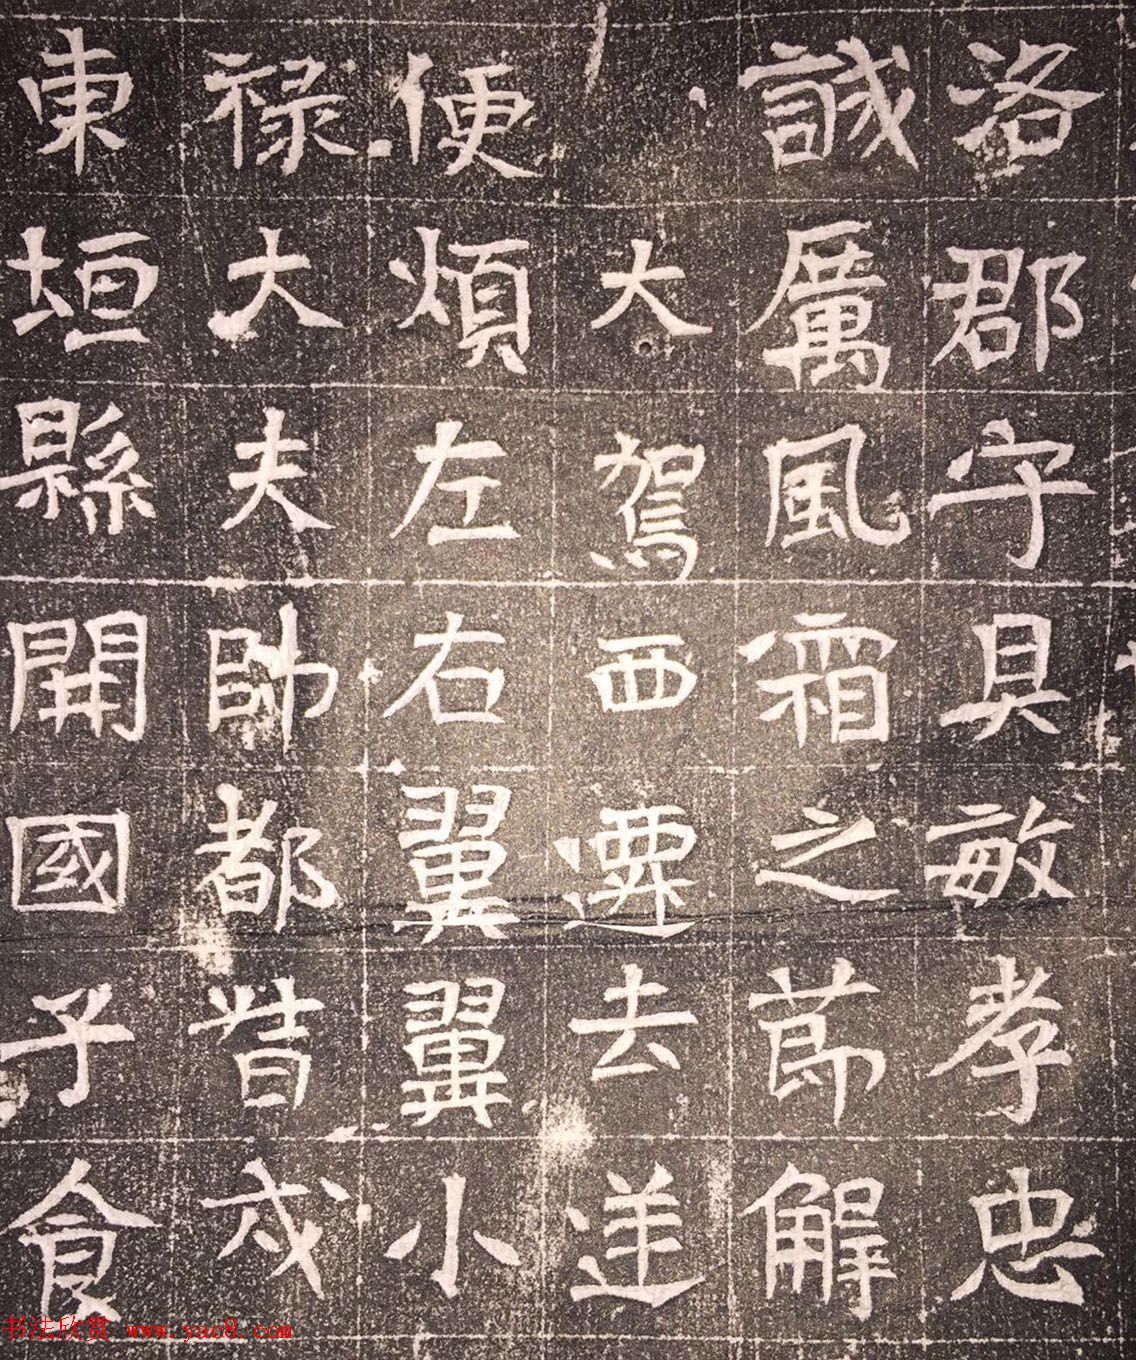 洛郡守具敏孝忠
誠厲風霜之莭解
大駕西遷去逆
便煩左右翼翼小
禄大夫帥都昔戎
東垣縣開國子食
书法欣赏 www.yac8.com